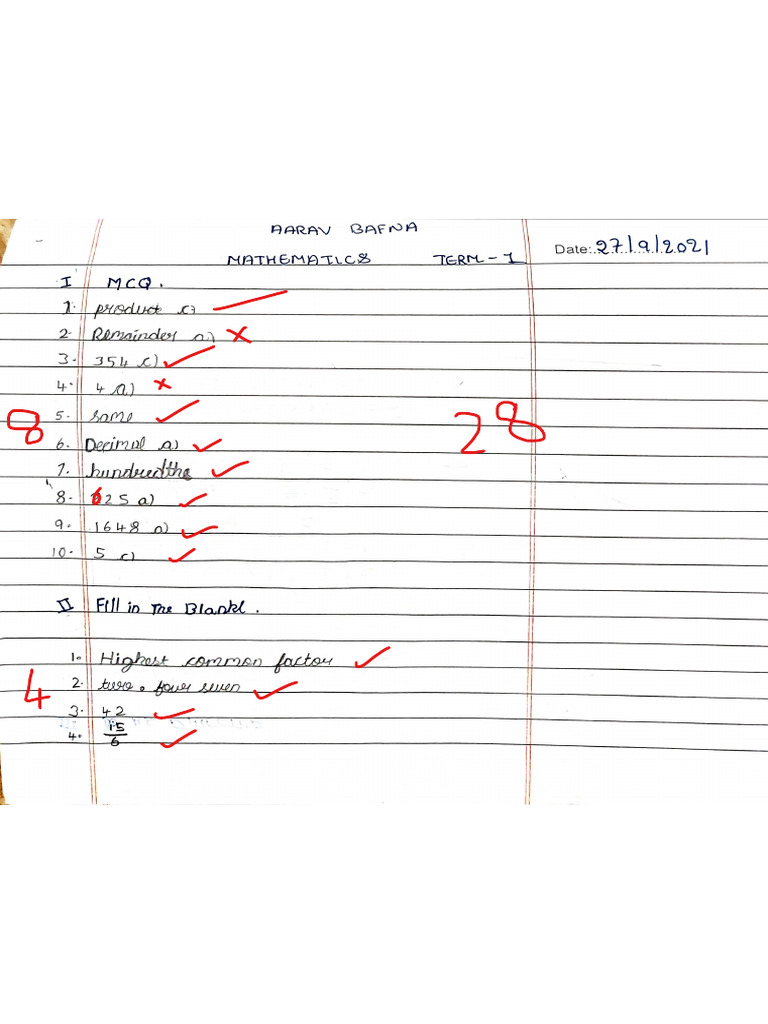 AARAV BAFNA
Date: 27/9/2021
MATHEMATICS TERM - 1
I MCQ.
1. product c)
2. Remainder a)
3. 354 c)
4. 4 a)
5. same
6. Decimal a)
7. hundredths
8. 625 a)
9. 1648 a)
10. 5 c)
8
28
II Fill in The Blankl.
1. Highest common factor
2. two . four seven
3. 42
4. 15/6
4